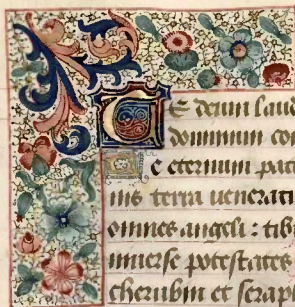 Te deum laud
dominum con
Te eternum pat
nis terra venerati
omnes angeli : tibi
universe potestates
cherubin et seraph